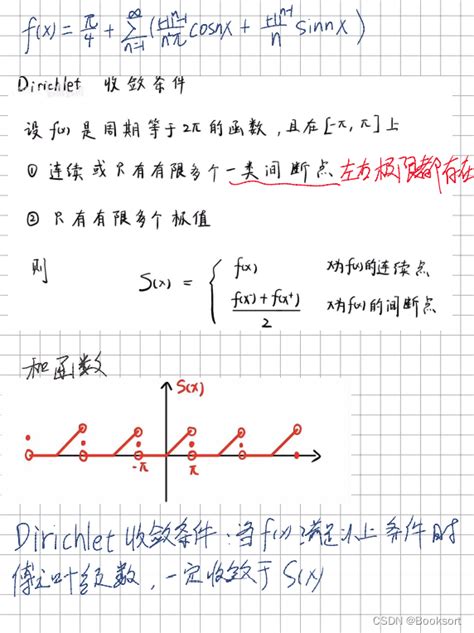 f(x) = π/4 + ∑_{n=1}^{∞} ( (-1)^n-1 / n²π cosnx + (-1)^{n-1} / n sinnx )
Dirichlet 收敛条件
设f(x)是周期等于2π的函数,且在[-π,π]上
① 连续或只有有限多个一类间断点 左右极限都存在
② 只有有限多个极值
则 S(x) = { f(x) x为f(x)的连续点
f(x⁻)+f(x⁺) / 2 x为f(x)的间断点
和函数
S(x)
-π π
Dirichlet收敛条件:当f(x)满足以上条件时
傅立叶级数,一定收敛于S(x)
CSDN @Booksort